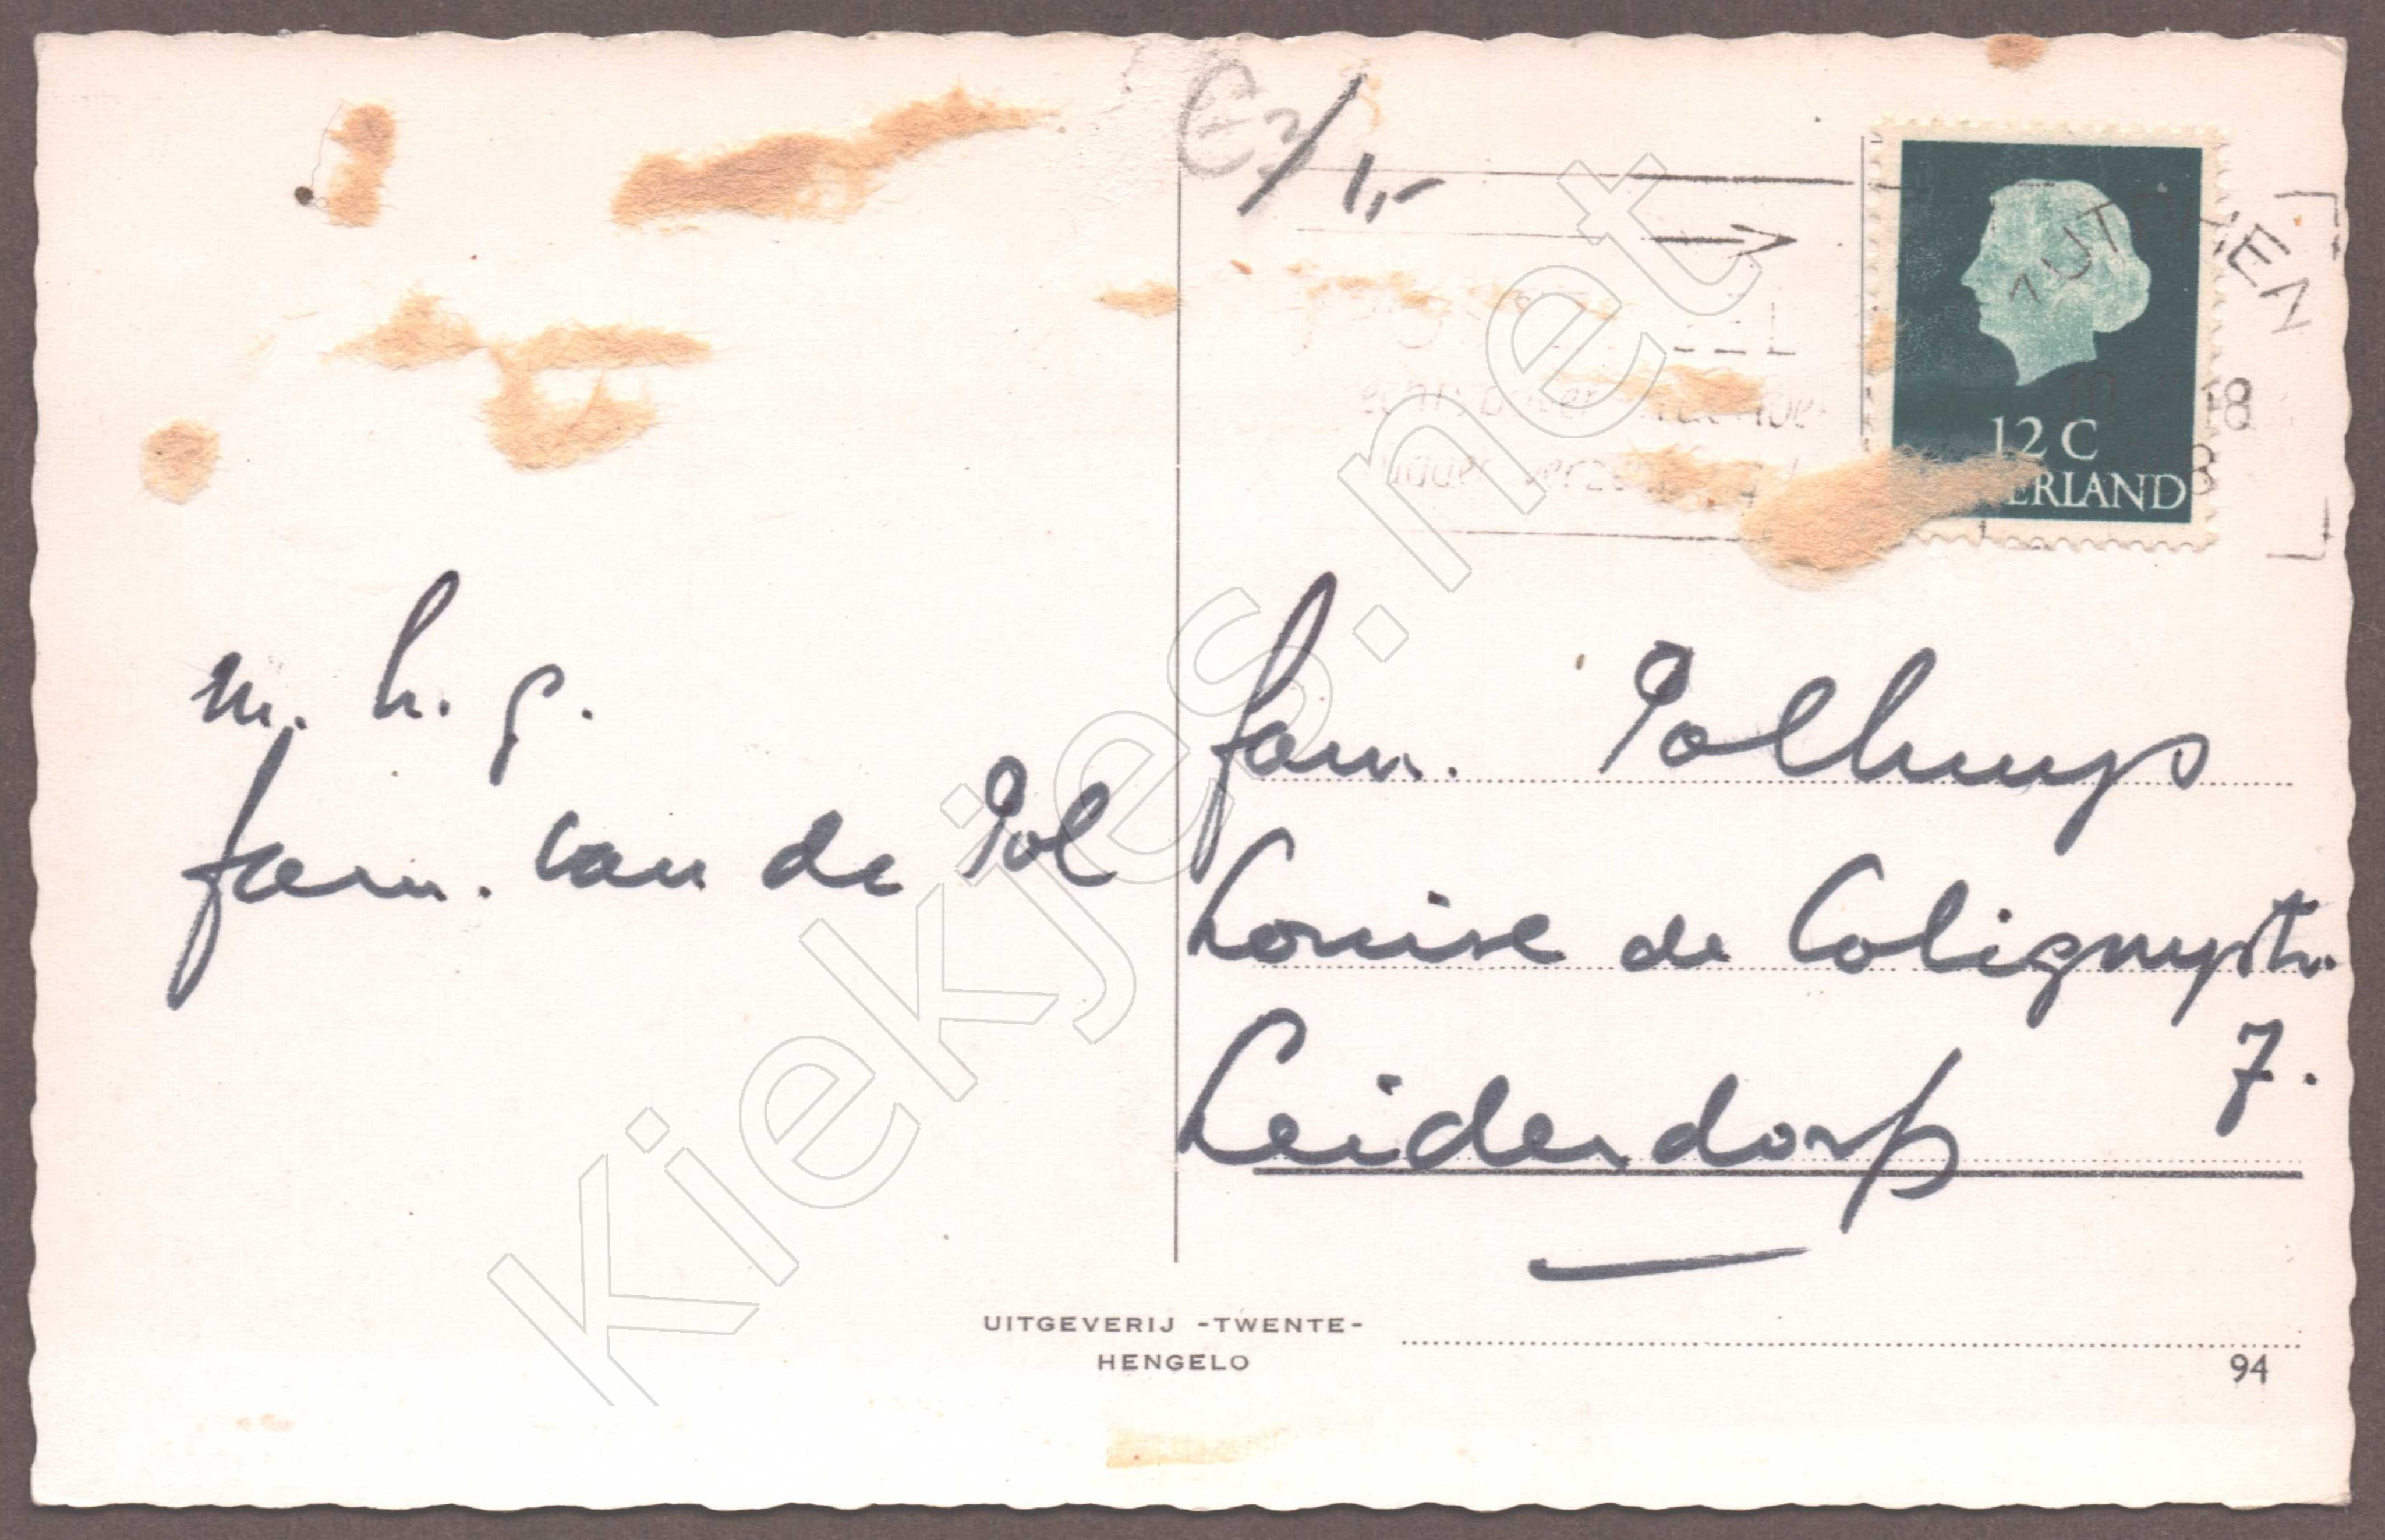 € 3/1,-
ZUTPHEN
18
12 C
NEDERLAND
m. h. g.
fam. van de Pol
fam. Polhuys
Louise de Colignystr.
7.
Leiderdorp
UITGEVERIJ -TWENTE-
HENGELO
94
Kiekjes.net